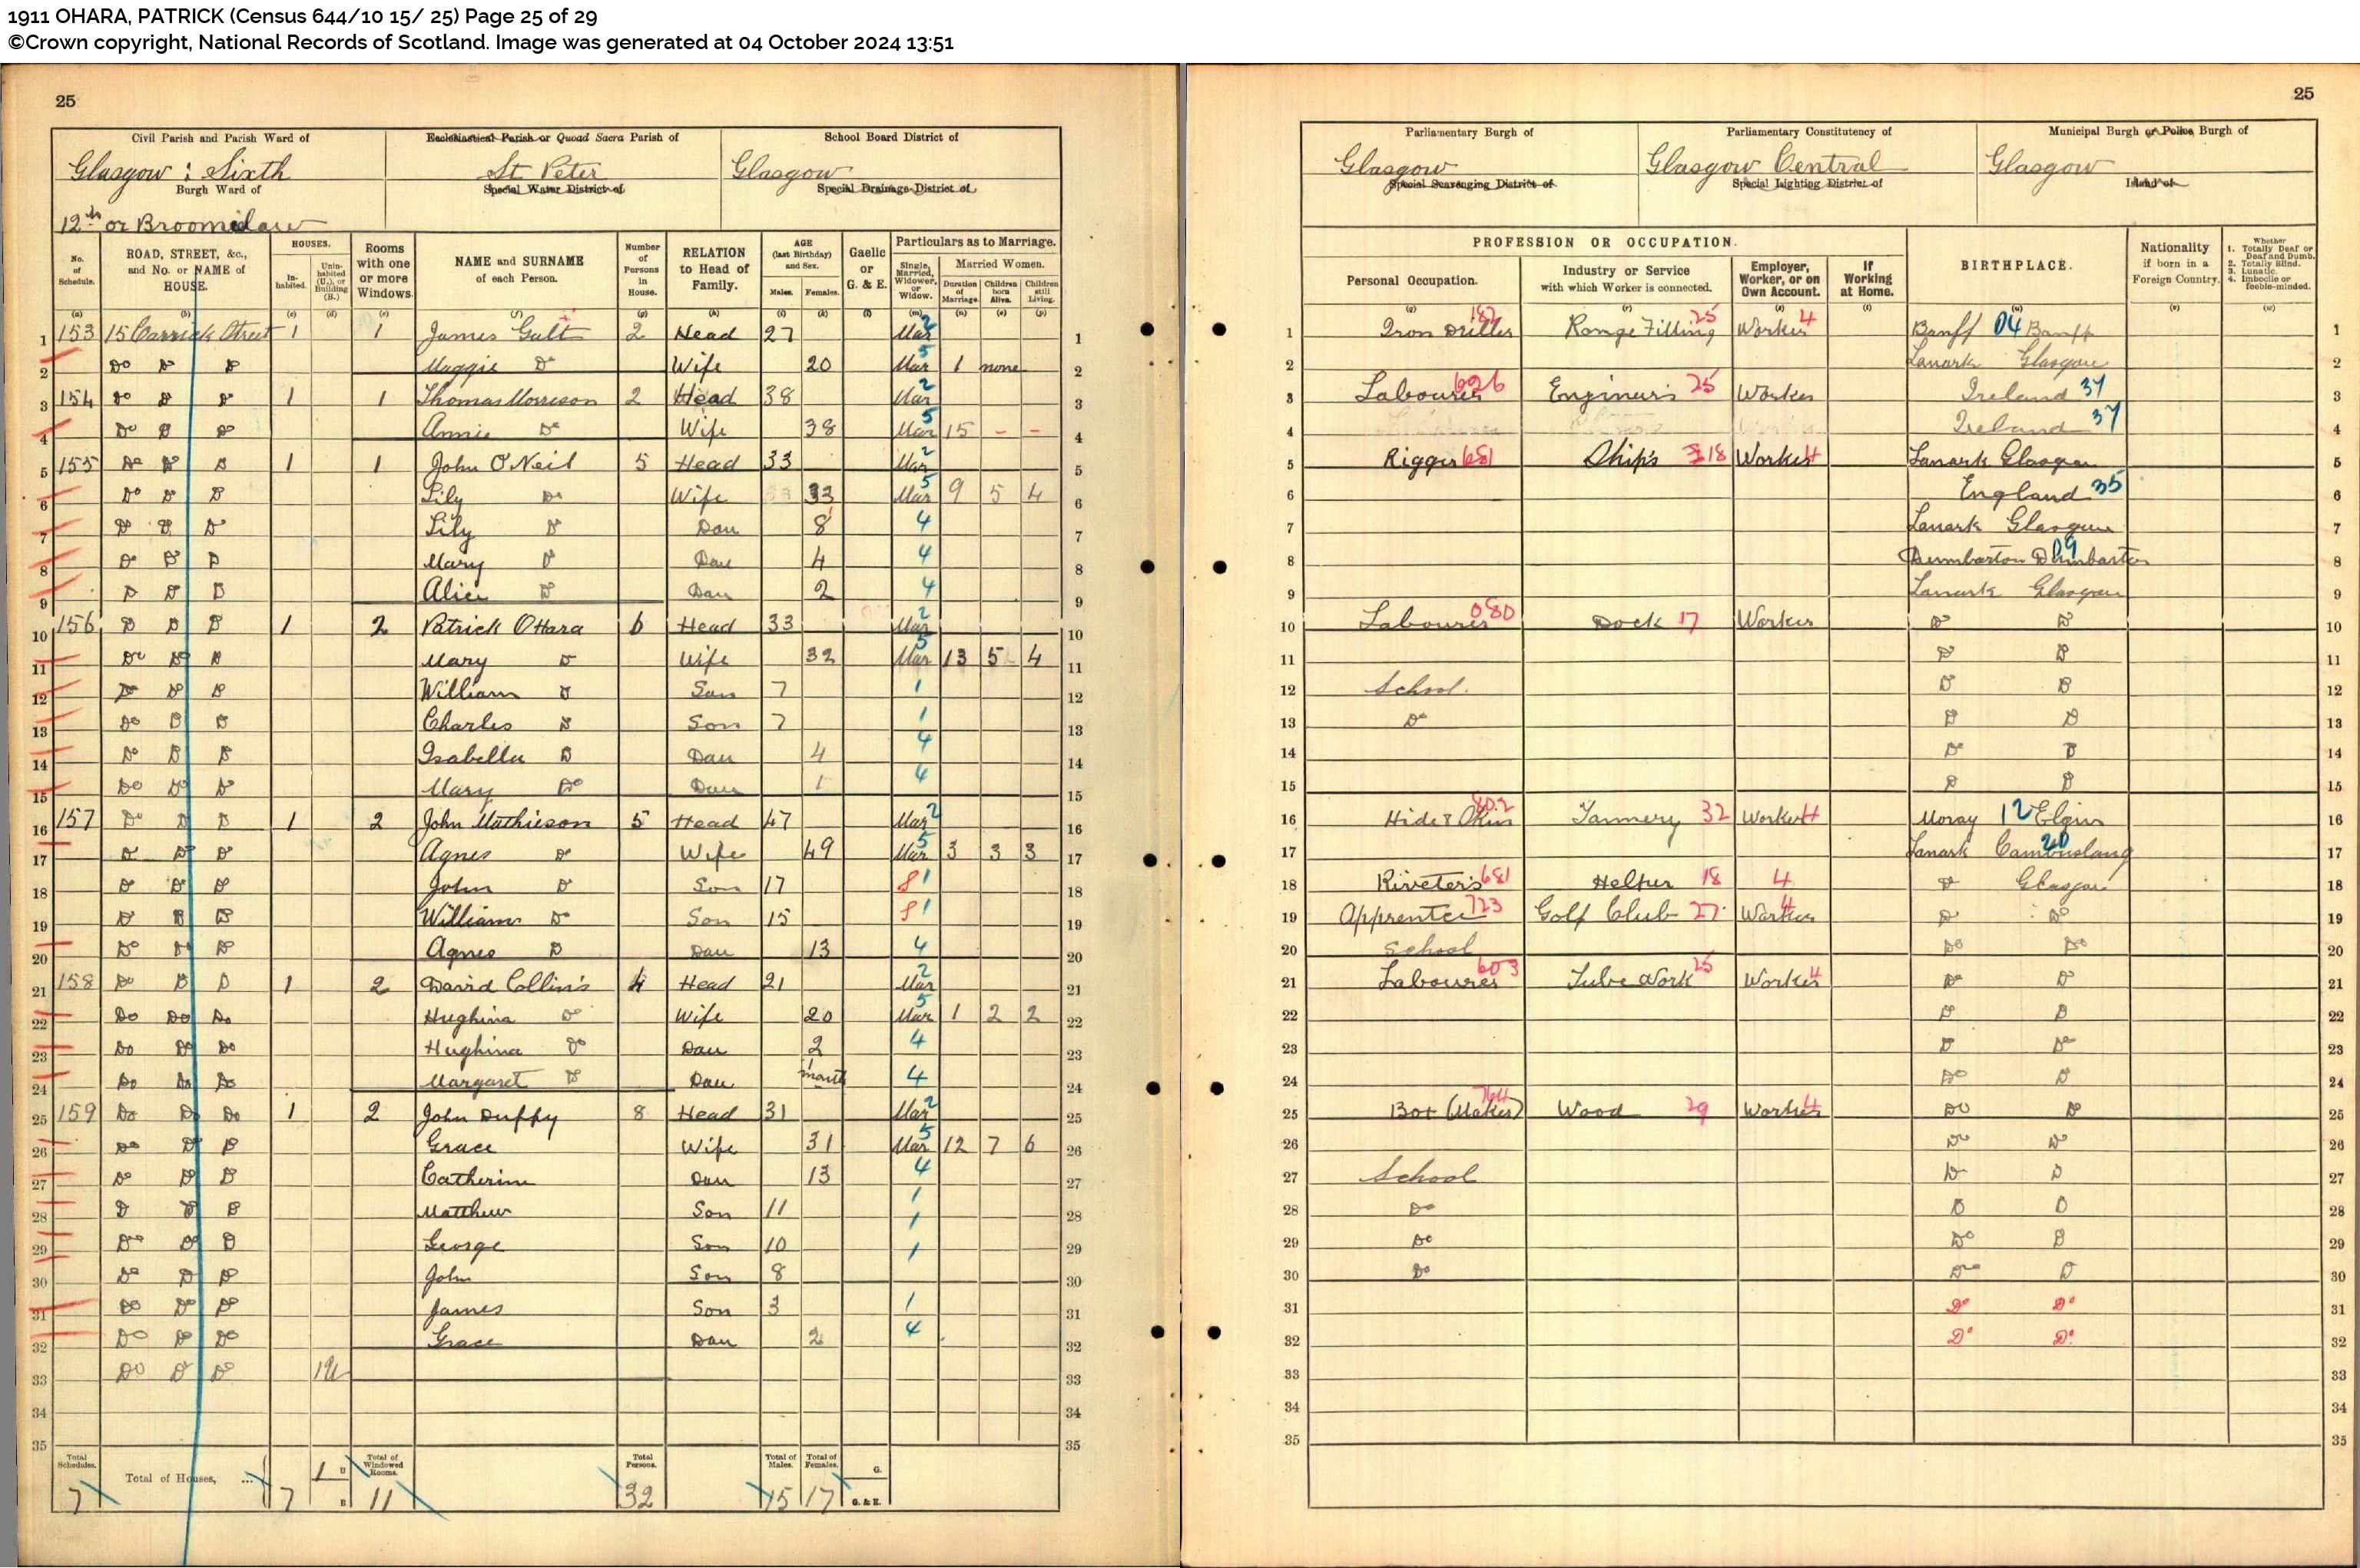 1911 OHARA, PATRICK (Census 644/10 15/ 25) Page 25 of 29
©Crown copyright, National Records of Scotland. Image was generated at 04 October 2024 13:51
25
25
Civil Parish and Parish Ward of
Glasgow : Sixth
Burgh Ward of
12th or Broomielaw
Ecclesiastical Parish or Quoad Sacra Parish of
St Peter
Special Water District of
School Board District of
Glasgow
Special Drainage District of
Parliamentary Burgh of
Glasgow
Special Scavenging District of
Parliamentary Constitutency of
Glasgow Central
Special Lighting District of
Municipal Burgh or Police Burgh of
Glasgow
Island of
No. of Schedule. ROAD, STREET, &c., and No. or NAME of HOUSE. HOUSES. Inhabited. Uninhabited (U.), or Building (B.) Rooms with one or more Windows. NAME and SURNAME of each Person. Number of Persons in House. RELATION to Head of Family. AGE (last Birthday) and Sex. Males. Females. Gaelic or G. & E. Particulars as to Marriage. Single, Married, Widower, or Widow. Married Women. Duration of Marriage. Children born Alive. Children still Living.
PROFESSION OR OCCUPATION. Personal Occupation. Industry or Service with which Worker is connected. Employer, Worker, or on Own Account. If Working at Home. BIRTHPLACE. Nationality if born in a Foreign Country. Whether 1. Totally Deaf or Deaf and Dumb. 2. Totally Blind. 3. Lunatic. 4. Imbecile or feeble-minded.
1 153 15 Carrick Street 1 1 James Galt 2 Head 27 Mar 2 Iron Driller 187 Range Fitting 25 Worker 4 Banff 04 Banff 1
2 Do Do Do Maggie Do Wife 20 Mar 5 1 none Lanark Glasgow 2
3 154 Do Do Do 1 1 Thomas Morrison 2 Head 38 Mar 2 Labourer 626 Engineers 25 Worker Ireland 37 3
4 Do Do Do Annie Do Wife 38 Mar 5 15 - - Ireland 37 4
5 155 Do Do Do 1 1 John O'Neil 5 Head 33 Mar 2 Rigger 681 Ships 18 Worker 4 Lanark Glasgow 5
6 Do Do Do Lily Do Wife 33 Mar 5 9 5 4 England 35 6
7 Do Do Do Lily Do Dau 8 4 Lanark Glasgow 7
8 Do Do Do Mary Do Dau 4 4 Dumbarton 09 Dumbarton 8
9 Do Do Do Alice Do Dau 2 4 Lanark Glasgow 9
10 156 Do Do Do 1 2 Patrick O'Hara 6 Head 33 Mar 2 Labourer 080 Dock 17 Worker Do Do 10
11 Do Do Do Mary Do Wife 32 Mar 5 13 5 4 Do Do 11
12 Do Do Do William Do Son 7 1 School Do Do 12
13 Do Do Do Charles Do Son 7 1 Do Do Do 13
14 Do Do Do Isabella Do Dau 4 4 Do Do 14
15 Do Do Do Mary Do Dau 1 4 Do Do 15
16 157 Do Do Do 1 2 John Mathieson 5 Head 47 Mar 2 Hide & Skin 802 Tannery 32 Worker 4 Moray 12 Elgin 16
17 Do Do Do Agnes Do Wife 49 Mar 5 3 3 3 Lanark 20 Cambuslang 17
18 Do Do Do John Do Son 17 S 1 Riveter's 681 Helper 18 4 Do Glasgow 18
19 Do Do Do William Do Son 15 S 1 Apprentice 723 Golf Club 27 Worker 4 Do Do 19
20 Do Do Do Agnes Do Dau 13 4 School Do Do 20
21 158 Do Do Do 1 2 David Collins 4 Head 21 Mar 2 Labourer 603 Tube Work 25 Worker 4 Do Do 21
22 Do Do Do Hughina Do Wife 20 Mar 5 1 2 2 Do Do 22
23 Do Do Do Hughina Do Dau 2 4 Do Do 23
24 Do Do Do Margaret Do Dau month 4 Do Do 24
25 159 Do Do Do 1 2 John Duffy 8 Head 31 Mar 2 Box (Maker) 764 Wood 29 Worker 4 Do Do 25
26 Do Do Do Grace Wife 31 Mar 5 12 7 6 Do Do 26
27 Do Do Do Catherine Dau 13 4 School Do Do 27
28 Do Do Do Matthew Son 11 1 Do Do Do 28
29 Do Do Do George Son 10 1 Do Do Do 29
30 Do Do Do John Son 8 1 Do Do Do 30
31 Do Do Do James Son 3 1 Do Do 31
32 Do Do Do Grace Dau 2 4 Do Do 32
33 Do Do Do 1U 33
34 34
35 35
Total Schedules. 7 Total of Houses, ... 7 1 U B Total of Windowed Rooms. 11 Total Persons. 32 Total of Males. 15 Total of Females. 17 G. G. & E.